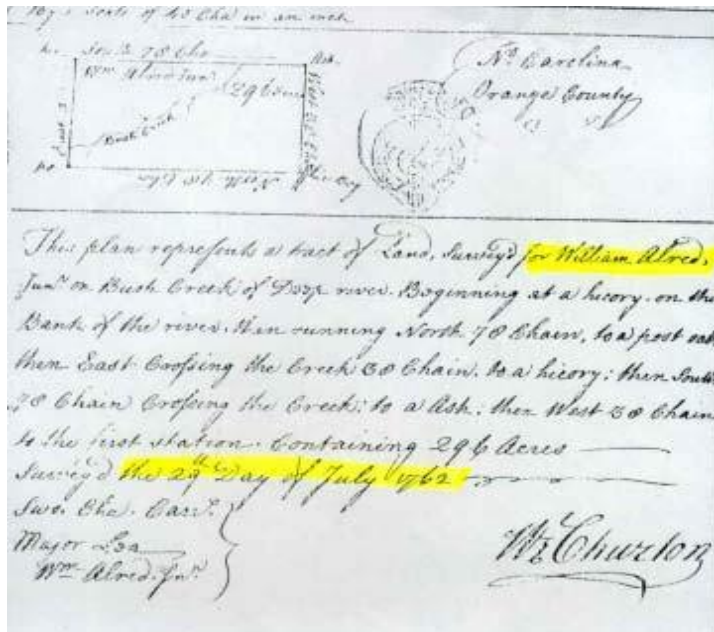 by a Scale of 40 Cha in an inch
South 78 Cha
Wm Alred Junr
296 acres
Ash
Bush Creek
North 78 Cha
Hicory
No Carolina
Orange County
This plan represents a tact of Land, Survey'd for William Alred,
Junr on Bush Creek of Deep river. Beginning at a hicory on the
Bank of the river, then running North 78 Chain, to a post oak
then East Crossing the Creek 38 Chain, to a hicory; then South
78 Chain Crossing the Creek; to a Ash; then West 38 Chain
to the first station. Containing 296 Acres
Survey'd the 29th Day of July 1762
Swo. Cha. Carr.
Major Lea
Wm Alred. Jnr
Wm Churton